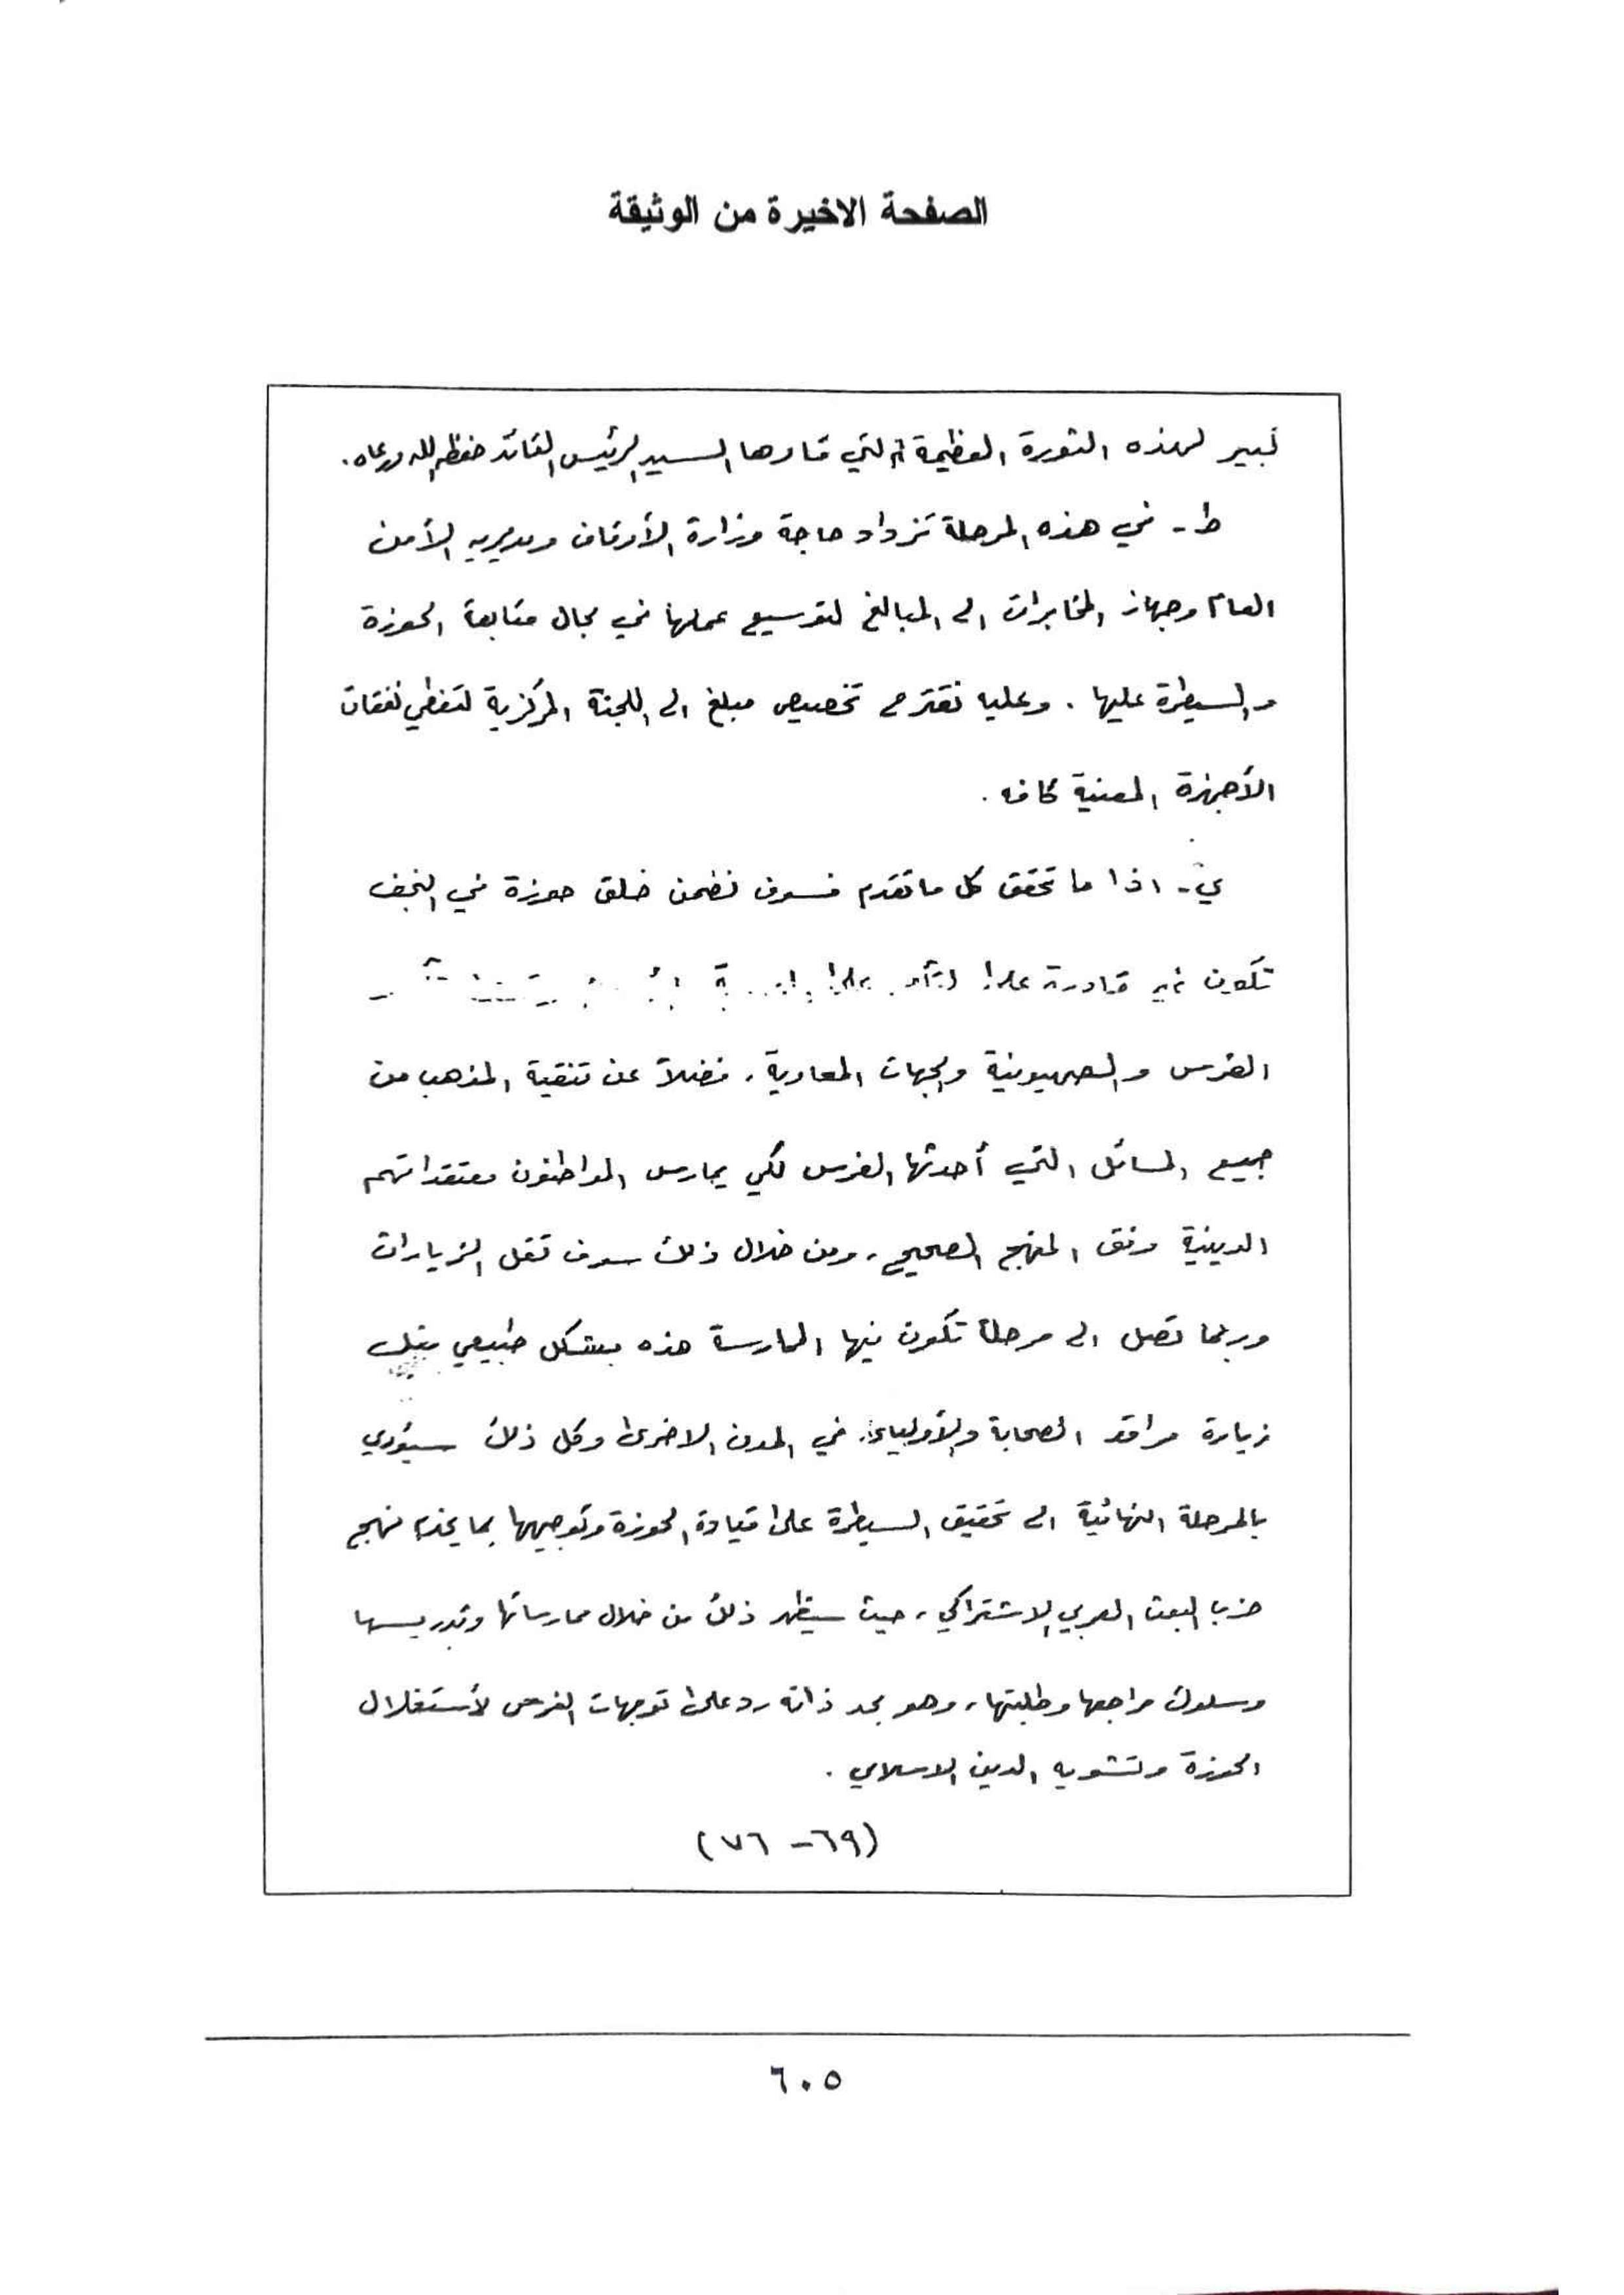 الصفحة الاخيرة من الوثيقة
كبير لهذه الثورة العظيمة التي قادها السيد الرئيس القائد حفظه الله ورعاه.
ط - في هذه المرحلة تزداد حاجة وزارة الأوقاف ومديرية الأمن
العام وجهاز المخابرات الى المبالغ لتوسيع عملها في مجال متابعة الحوزة
والسيطرة عليها . وعليه نقترح تخصيص مبلغ الى اللجنة المركزية لتغطي نفقات
الأجهزة المعنية كافه .
ي - اذا ما تحقق كل ما تقدم فسوف نضمن خلق حوزة في النجف
تكون غير قادرة على
الفرس والصهيونية والجهات المعادية، فضلاً عن تنقية المذهب من
جميع المسائل التي أحدثها الفرس لكي يمارس المواطنون معتقداتهم
الدينية وفق المنهج الصحيح، ومن خلال ذلك سوف تقل الزيارات
وربما تصل الى مرحلة تكون فيها الممارسة هذه بشكل طبيعي
زيارة مراقد الصحابة والأولياء في المدن الاخرى وكل ذلك سيؤدي
بالمرحلة النهائية الى تحقيق السيطرة على قيادة الحوزة وتوجيهها بما يخدم نهج
حزب البعث العربي الاشتراكي، حيث سيظهر ذلك من خلال ممارساتها وتدريسها
وسلوك مراجعها وطلبتها، وهو بحد ذاته رد على توجهات الفرس لأستغلال
الحوزة وتشويه الدين الاسلامي .
(٦٩ - ٧٦)
٦٠٥